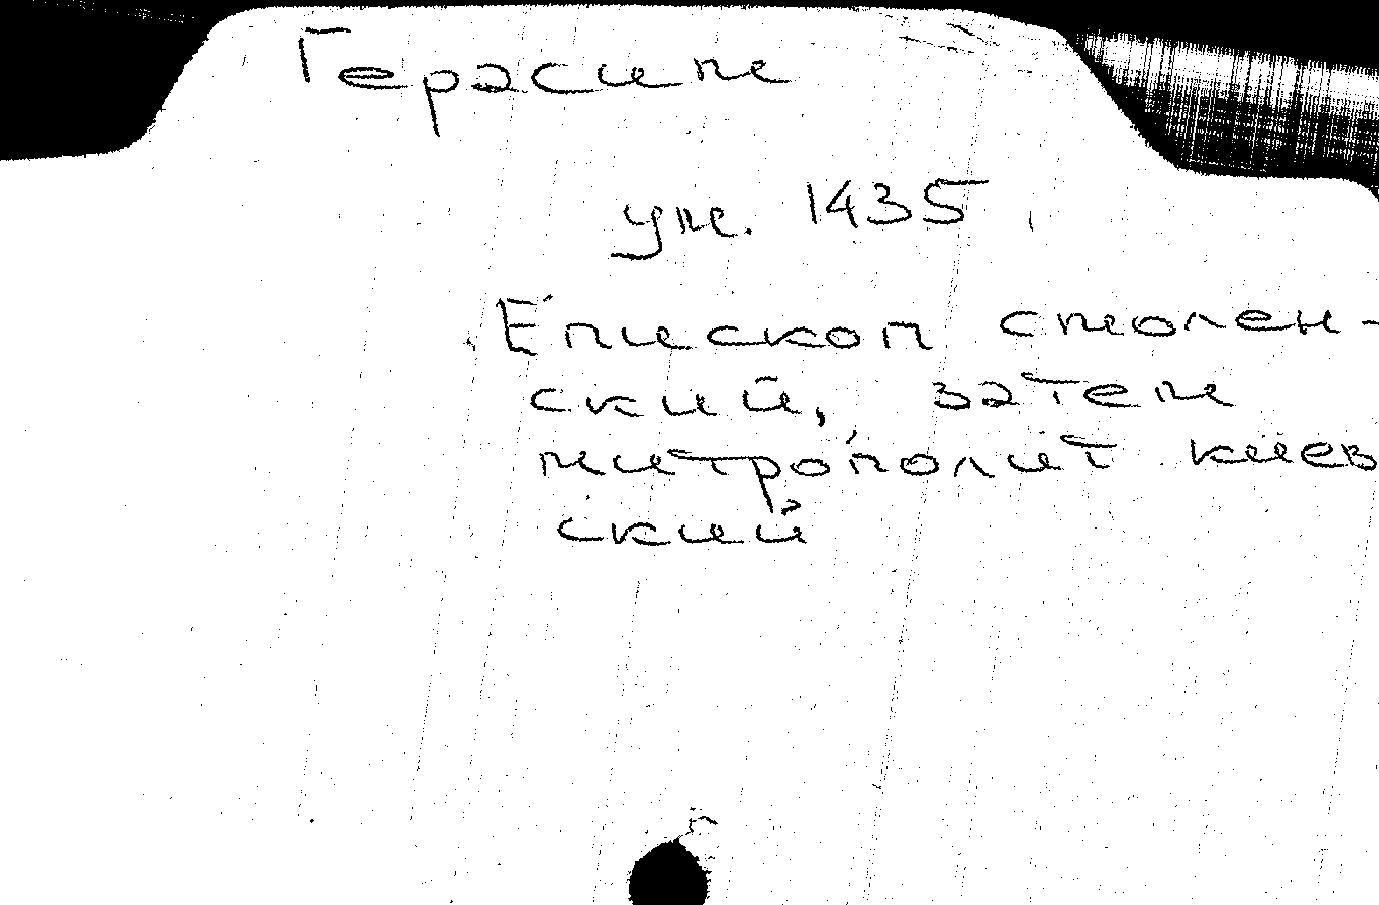 Герасим
ум. 1435
Епископ смолен-
ский, затем
митрополит киев
ский